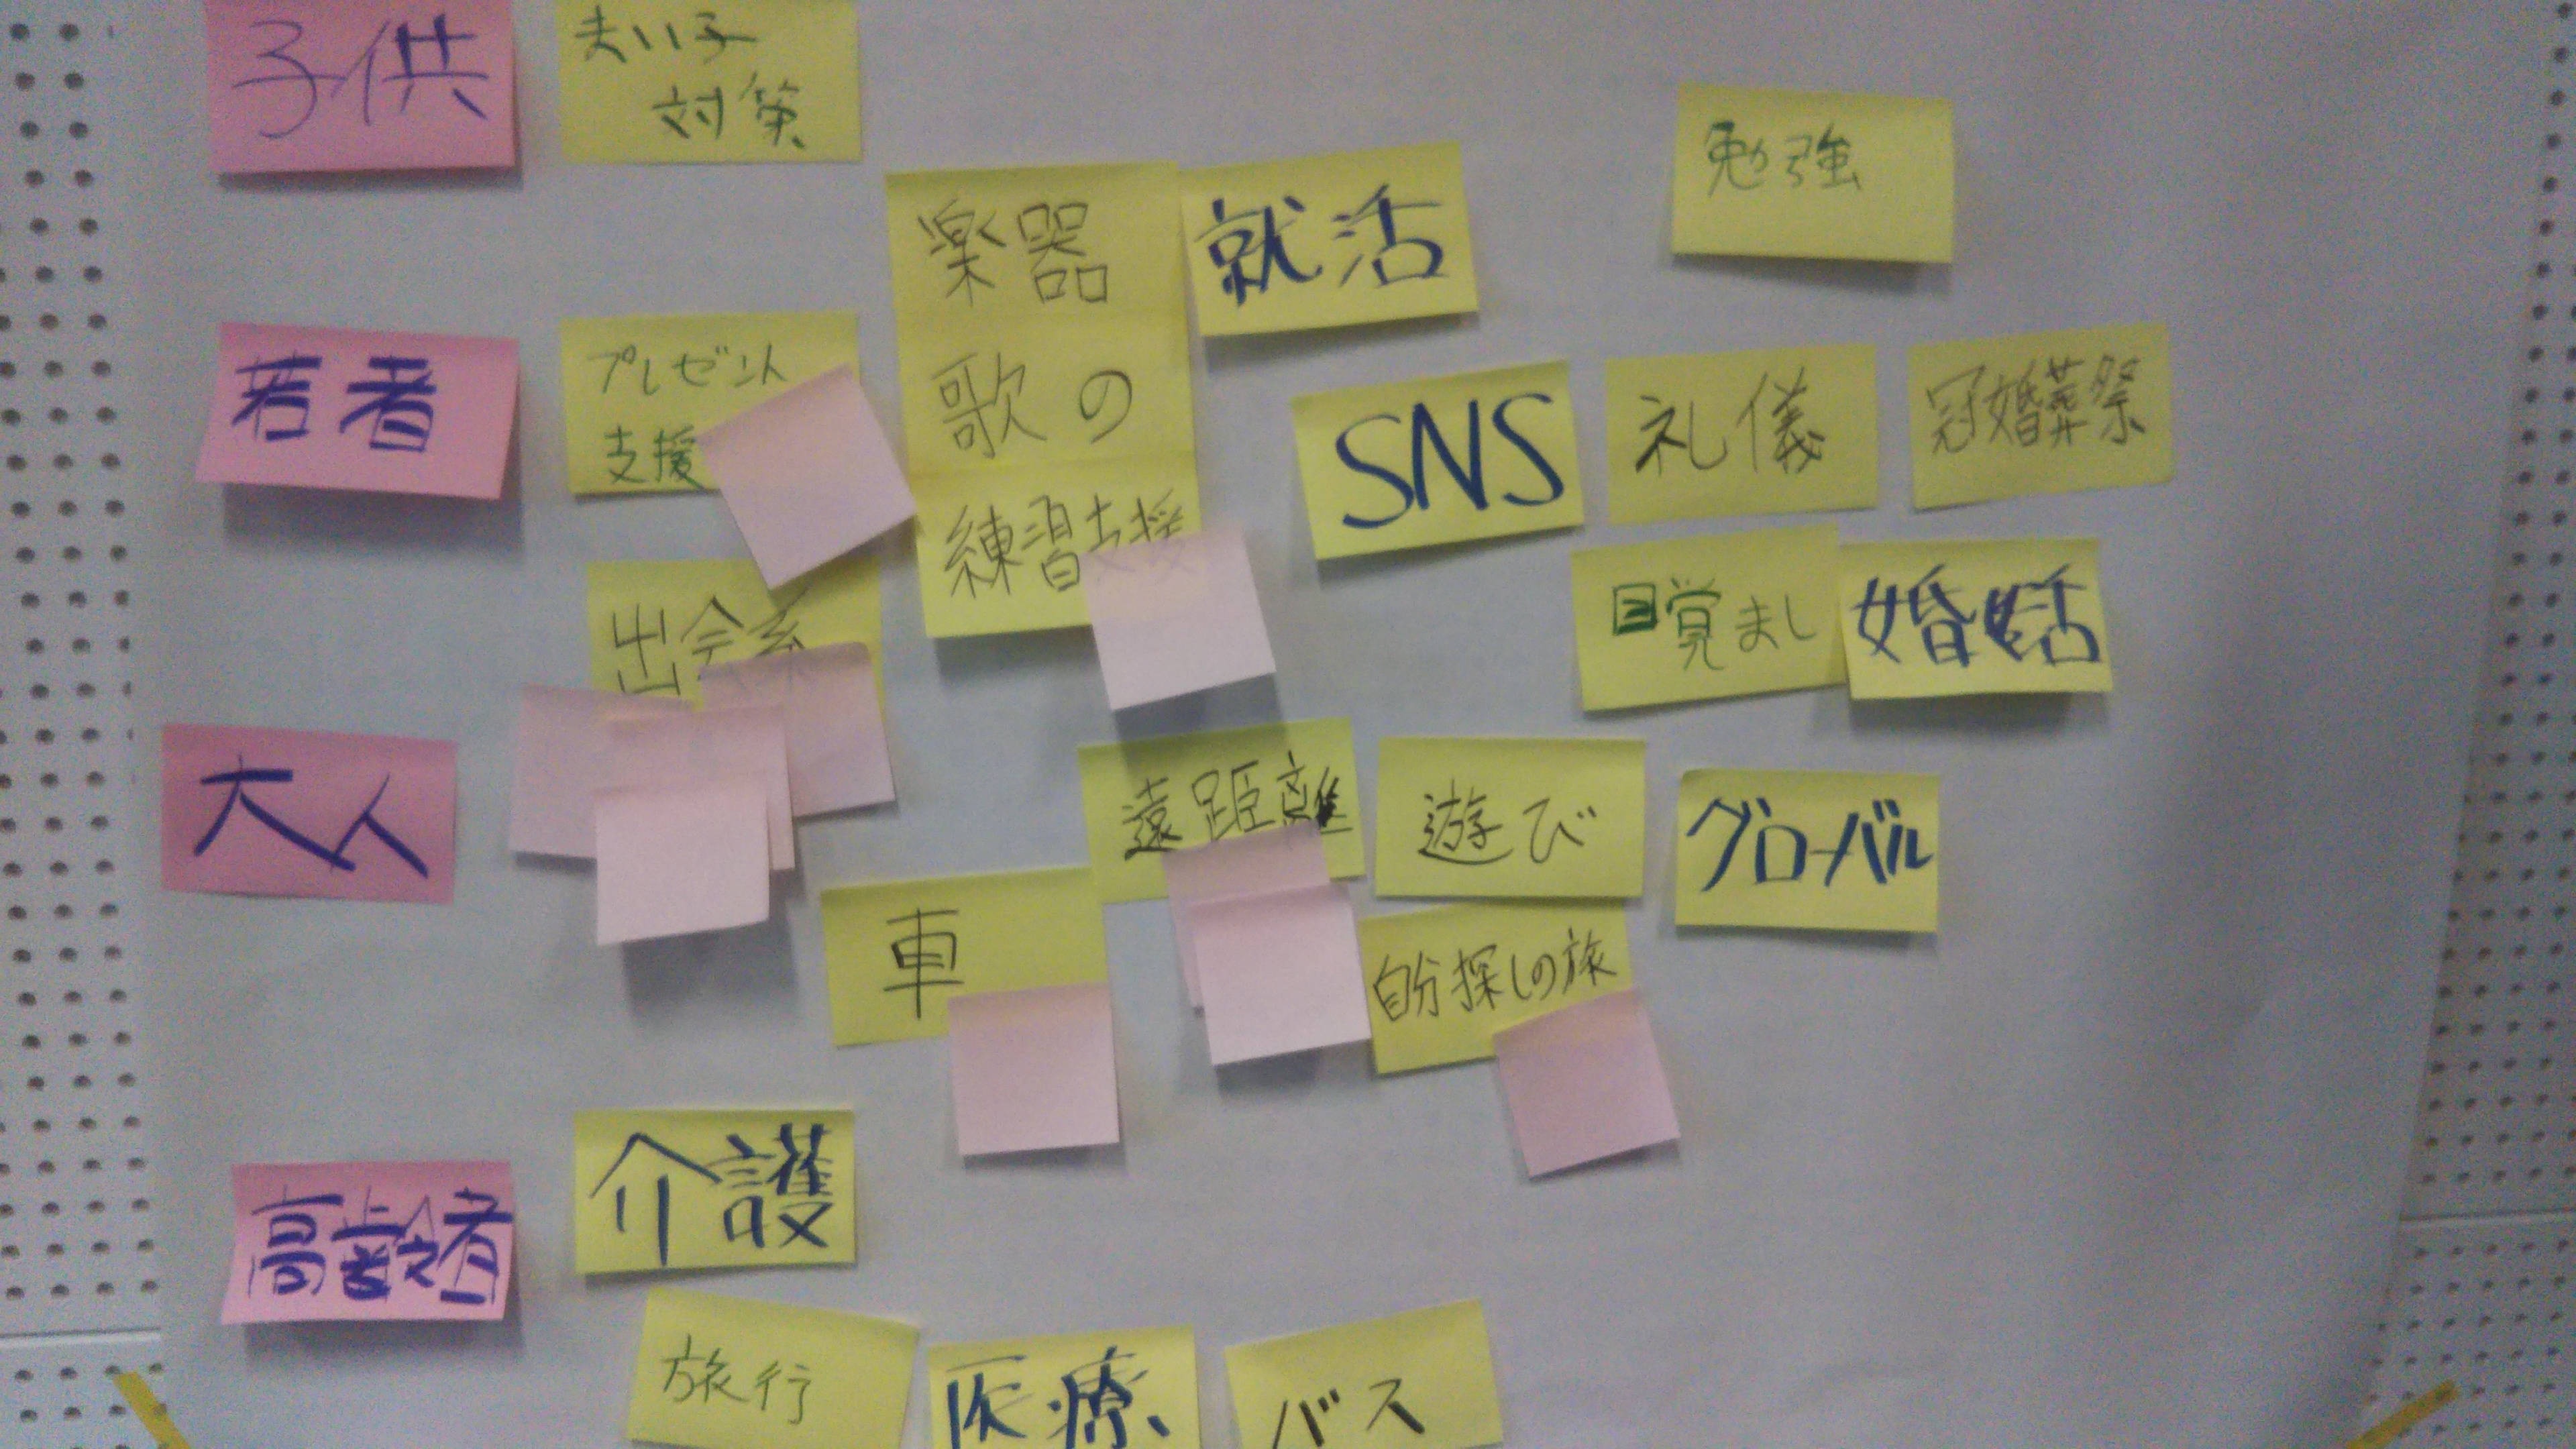 子供
迷い子
対策
勉強
楽器
歌の
練習支援
就活
若者
プレゼント
支援
SNS
礼儀
冠婚葬祭
出会系
目覚まし
婚活
大人
遠距離
遊び
グローバル
車
自分探しの旅
高齢者
介護
旅行
医療
バス